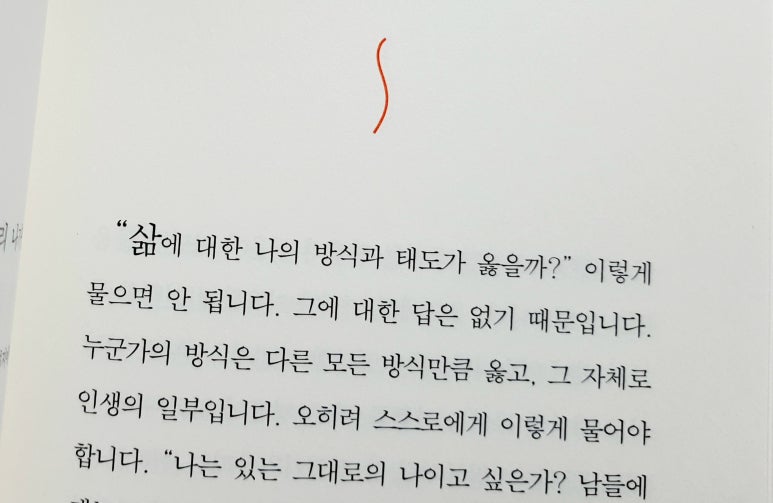 “삶에 대한 나의 방식과 태도가 옳을까?” 이렇게
물으면 안 됩니다. 그에 대한 답은 없기 때문입니다.
누군가의 방식은 다른 모든 방식만큼 옳고, 그 자체로
인생의 일부입니다. 오히려 스스로에게 이렇게 물어야
합니다. “나는 있는 그대로의 나이고 싶은가? 남들에